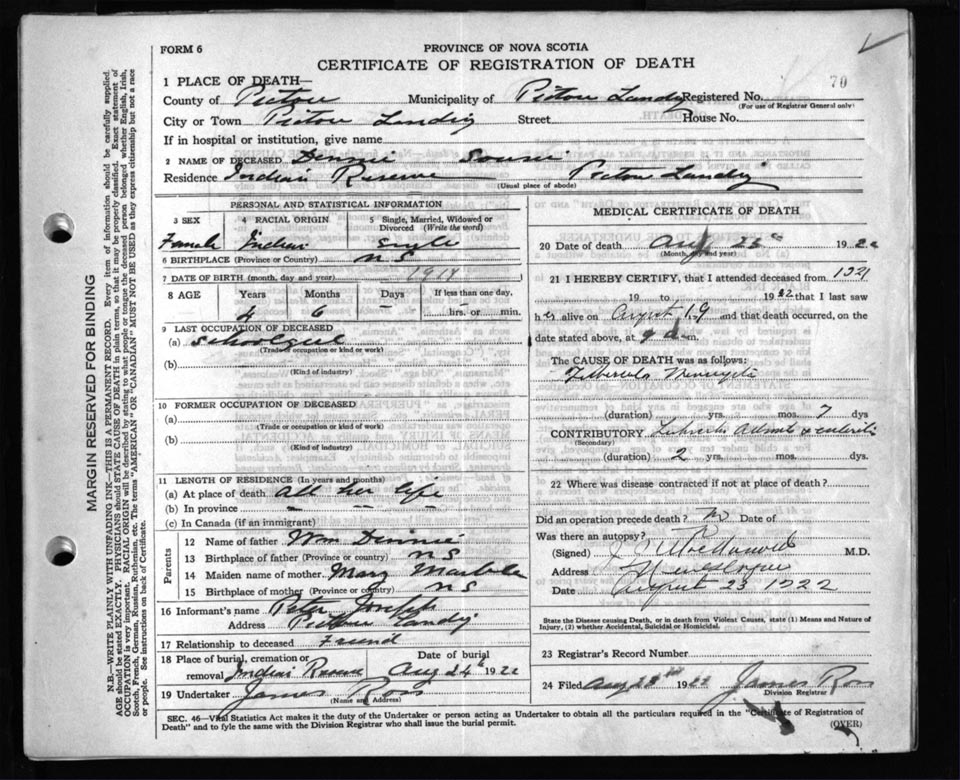 FORM 6
PROVINCE OF NOVA SCOTIA
CERTIFICATE OF REGISTRATION OF DEATH
70
1 PLACE OF DEATH—
County of Pictou Municipality of Pictou Landing Registered No.
(For use of Registrar General only)
City or Town Pictou Landing Street House No.
If in hospital or institution, give name
2 NAME OF DECEASED Dennie
Residence Indian Reserve Pictou Landing
(Usual place of abode)
PERSONAL AND STATISTICAL INFORMATION
3 SEX 4 RACIAL ORIGIN 5 Single, Married, Widowed or Divorced (Write the word)
Female Indian Single
6 BIRTHPLACE (Province or Country) N S
7 DATE OF BIRTH (month, day and year) 1917
8 AGE Years Months Days If less than one day,
4 6 — hrs. or min.
9 LAST OCCUPATION OF DECEASED
(a) Schoolgirl
(Trade or occupation or kind or work)
(b)
(Kind of industry)
10 FORMER OCCUPATION OF DECEASED
(a)
(Trade or occupation or kind of work)
(b)
(Kind of industry)
11 LENGTH OF RESIDENCE (In years and months)
(a) At place of death all her life
(b) In province — — —
(c) In Canada (if an immigrant)
Parents
12 Name of father Wm Dennie
13 Birthplace of father (Province or country) N S
14 Maiden name of mother Mary
15 Birthplace of mother (Province or country) N S
16 Informant's name Peter Joseph
Address Pictou Landing
17 Relationship to deceased Friend
18 Place of burial, cremation or removal Indian Reserve Date of burial Aug 24th 1922
19 Undertaker James Ross
(Name and Address)
MEDICAL CERTIFICATE OF DEATH
20 Date of death Aug 192
(Month, day and year)
21 I HEREBY CERTIFY, that I attended deceased from 1921
19 to 1922 that I last saw
her alive on August 19 and that death occurred, on
date stated above, at 9 a.m.
The CAUSE OF DEATH was as follows:
(duration) yrs. mos. 7 dys
CONTRIBUTORY
(Secondary)
(duration) 2 yrs. mos. dys.
22 Where was disease contracted if not at place of death?
Did an operation precede death? No Date of
Was there an autopsy?
(Signed) M.D.
Address
Date August 23 1922
State the Disease causing Death, or in death from Violent Causes, state (1) Means and Nature of Injury, (2) whether Accidental, Suicidal or Homicidal.
23 Registrar's Record Number
24 Filed Aug 1922 James Ross
Division Registrar
SEC. 46—Vital Statistics Act makes it the duty of the Undertaker or person acting as Undertaker to obtain all the particulars required in the "Certificate of Registration of
Death" and to fyle the same with the Division Registrar who shall issue the burial permit.
(OVER)
MARGIN RESERVED FOR BINDING
N.B.—WRITE PLAINLY WITH UNFADING INK—THIS IS A PERMANENT RECORD. Every item of information should be carefully supplied.
AGE should be stated EXACTLY. PHYSICIANS should STATE CAUSE OF DEATH in plain terms, so that it may be properly classified. Exact statement of
OCCUPATION is very important. RACIAL ORIGIN will be described by stating to what people or tongue the deceased person belonged whether English, Irish,
Scotch, French, German, Russian, Ruthenian, etc. The terms "AMERICAN" OR "CANADIAN" MUST NOT BE USED as they express citizenship but not a race
or people. See instructions on back of Certificate.